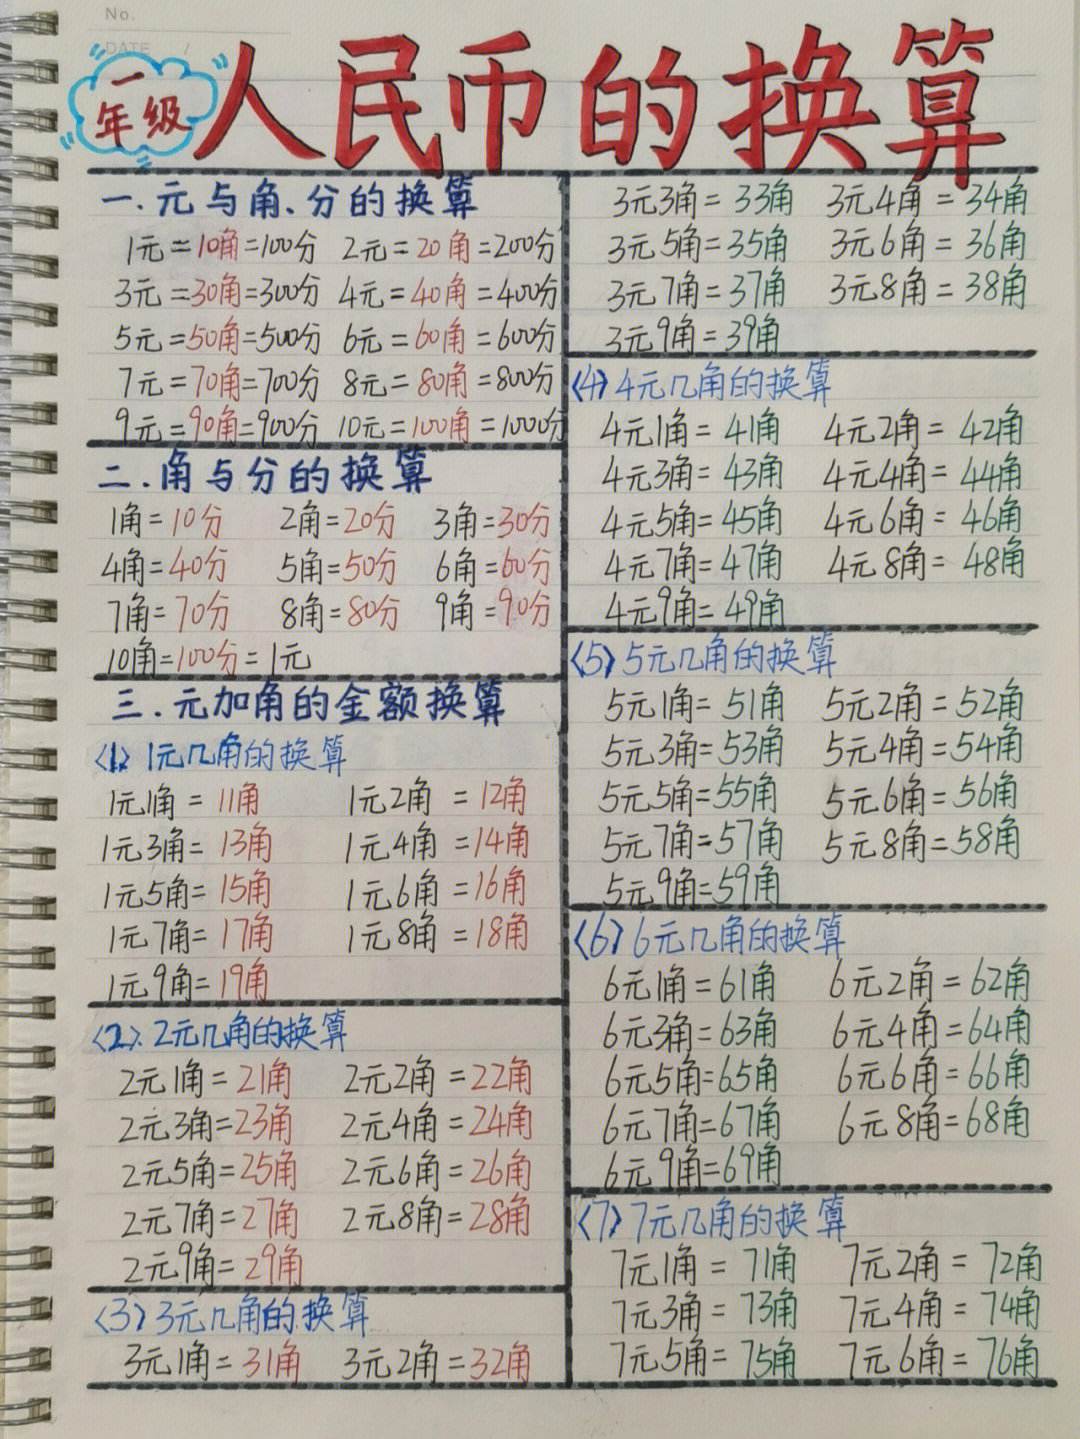 No.
DATE /
一年级
人民币的换算
一.元与角、分的换算
1元=10角=100分 2元=20角=200分
3元=30角=300分 4元=40角=400分
5元=50角=500分 6元=60角=600分
7元=70角=700分 8元=80角=800分
9元=90角=900分 10元=100角=1000分
二.角与分的换算
1角=10分 2角=20分 3角=30分
4角=40分 5角=50分 6角=60分
7角=70分 8角=80分 9角=90分
10角=100分=1元
三.元加角的金额换算
〈1〉1元几角的换算
1元1角=11角 1元2角=12角
1元3角=13角 1元4角=14角
1元5角=15角 1元6角=16角
1元7角=17角 1元8角=18角
1元9角=19角
〈2〉2元几角的换算
2元1角=21角 2元2角=22角
2元3角=23角 2元4角=24角
2元5角=25角 2元6角=26角
2元7角=27角 2元8角=28角
2元9角=29角
〈3〉3元几角的换算
3元1角=31角 3元2角=32角
3元3角=33角 3元4角=34角
3元5角=35角 3元6角=36角
3元7角=37角 3元8角=38角
3元9角=39角
〈4〉4元几角的换算
4元1角=41角 4元2角=42角
4元3角=43角 4元4角=44角
4元5角=45角 4元6角=46角
4元7角=47角 4元8角=48角
4元9角=49角
〈5〉5元几角的换算
5元1角=51角 5元2角=52角
5元3角=53角 5元4角=54角
5元5角=55角 5元6角=56角
5元7角=57角 5元8角=58角
5元9角=59角
〈6〉6元几角的换算
6元1角=61角 6元2角=62角
6元3角=63角 6元4角=64角
6元5角=65角 6元6角=66角
6元7角=67角 6元8角=68角
6元9角=69角
〈7〉7元几角的换算
7元1角=71角 7元2角=72角
7元3角=73角 7元4角=74角
7元5角=75角 7元6角=76角